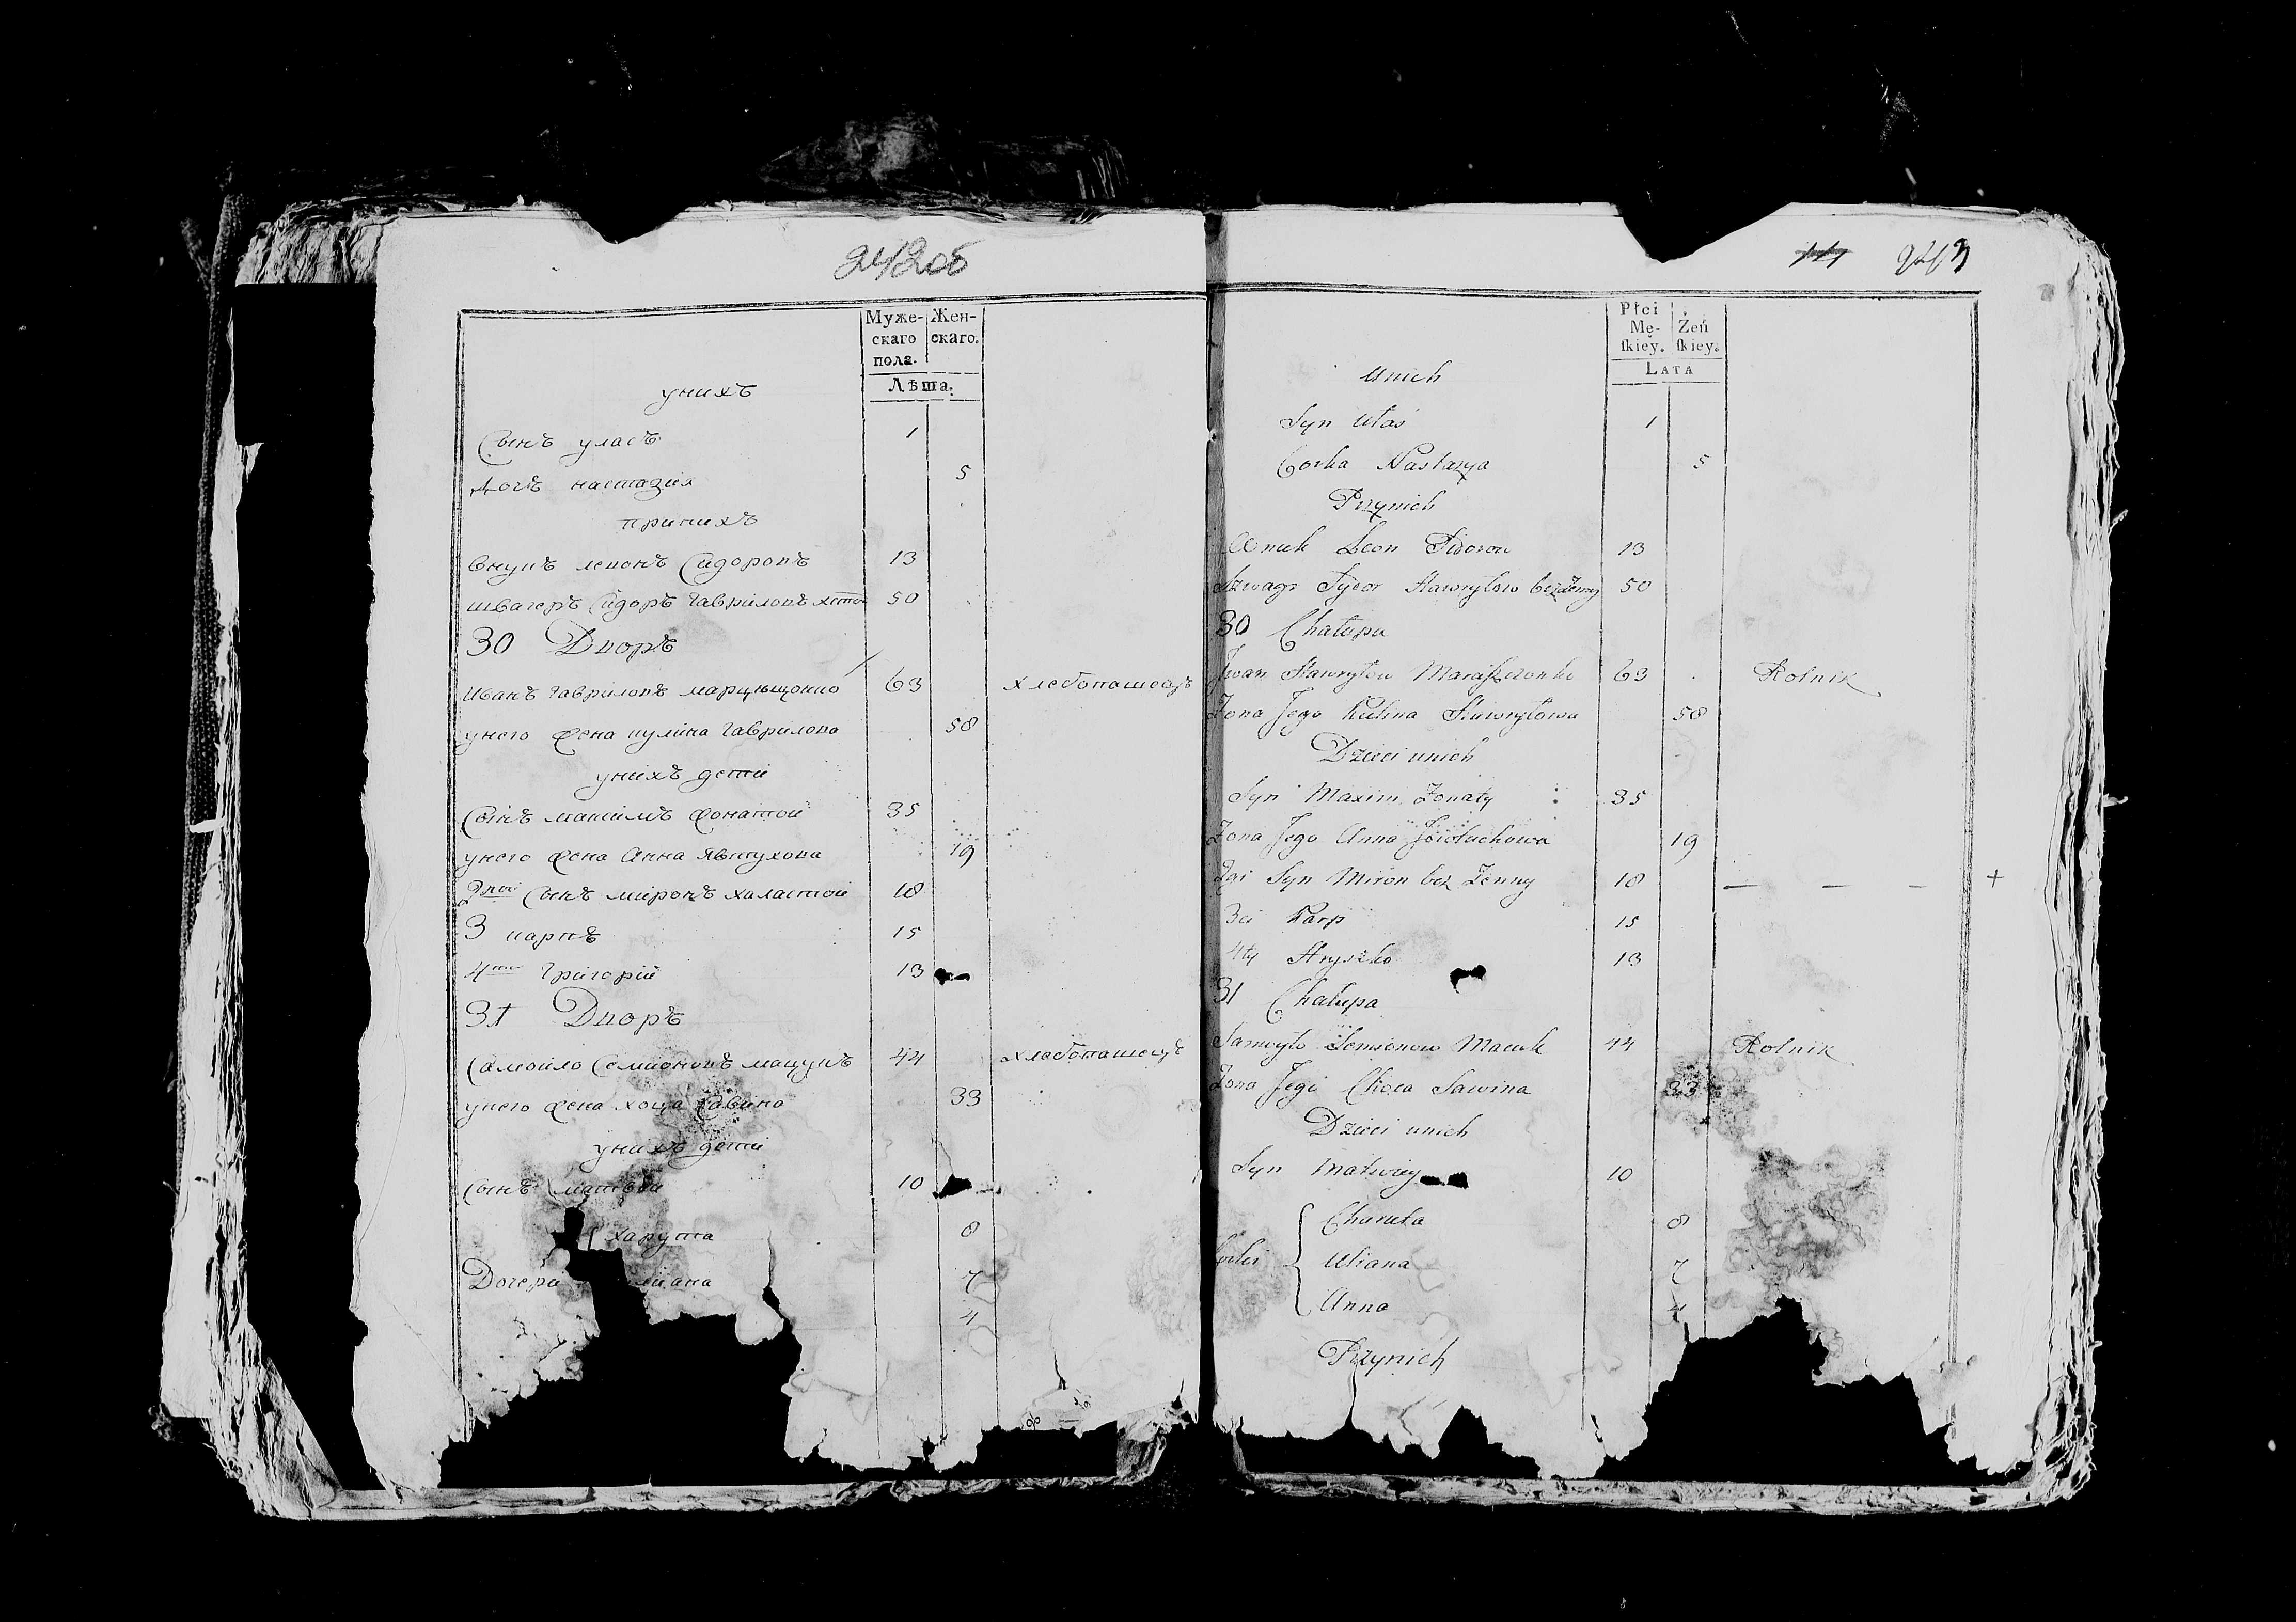 242об
Муже-
скаго
пола.
Жен-
скаго.
Лѣта.
унихъ
Сынъ уласъ 1
дочъ настазия 5
принихъ
внукъ леионъ Сидоровъ 13
швагеръ Сидоръ Гавриловъ 50
30 Дворъ
Иванъ Гавриловъ марцышонко 63 хлебопашецъ
унего жена кулина Гаврилова 58
унихъ дети
Сынъ максимъ жонатой 35
унего жена Анна Явтухова 19
2рой Сынъ миронъ халастой 18
3 карпъ 15
4тый Григорий 13
31 Дворъ
Самойло Семионовъ мацукъ 44 хлебопашецъ
унего жена хоця Савина 33
унихъ дети
Сынъ матвей 10
харута 8
Дочери лиана 7
4
243
Płci
Mę-
ſkiey.
Żeń
ſkiey.
Lata
Unich
Syn Ułas 1
Corka Nastazya 5
Przynich
Wnuk Leon Sidorow 13
Szwagr Sydor Hawryłow bezżenny 50
30 Chałupa
Jwan Hawryłow 63 Rolnik
Żona Jego Kulina Hawryłowa 58
Dzieci unich
Syn Maxim Żonaty 35
Żona Jego Anna Jowtuchowa 19
2gi Syn Miron bez Żenny 18 — — — +
3ci Karp 15
4ty Hryszko 13
31 Chałupa
Samuyło Semienow Macuk 44 Rolnik
Żona Jego Choca Sawina 33
Dzieci unich
Syn Matwiey 10
Charuta 8
Corki Uliana 7
Anna 4
Przynich